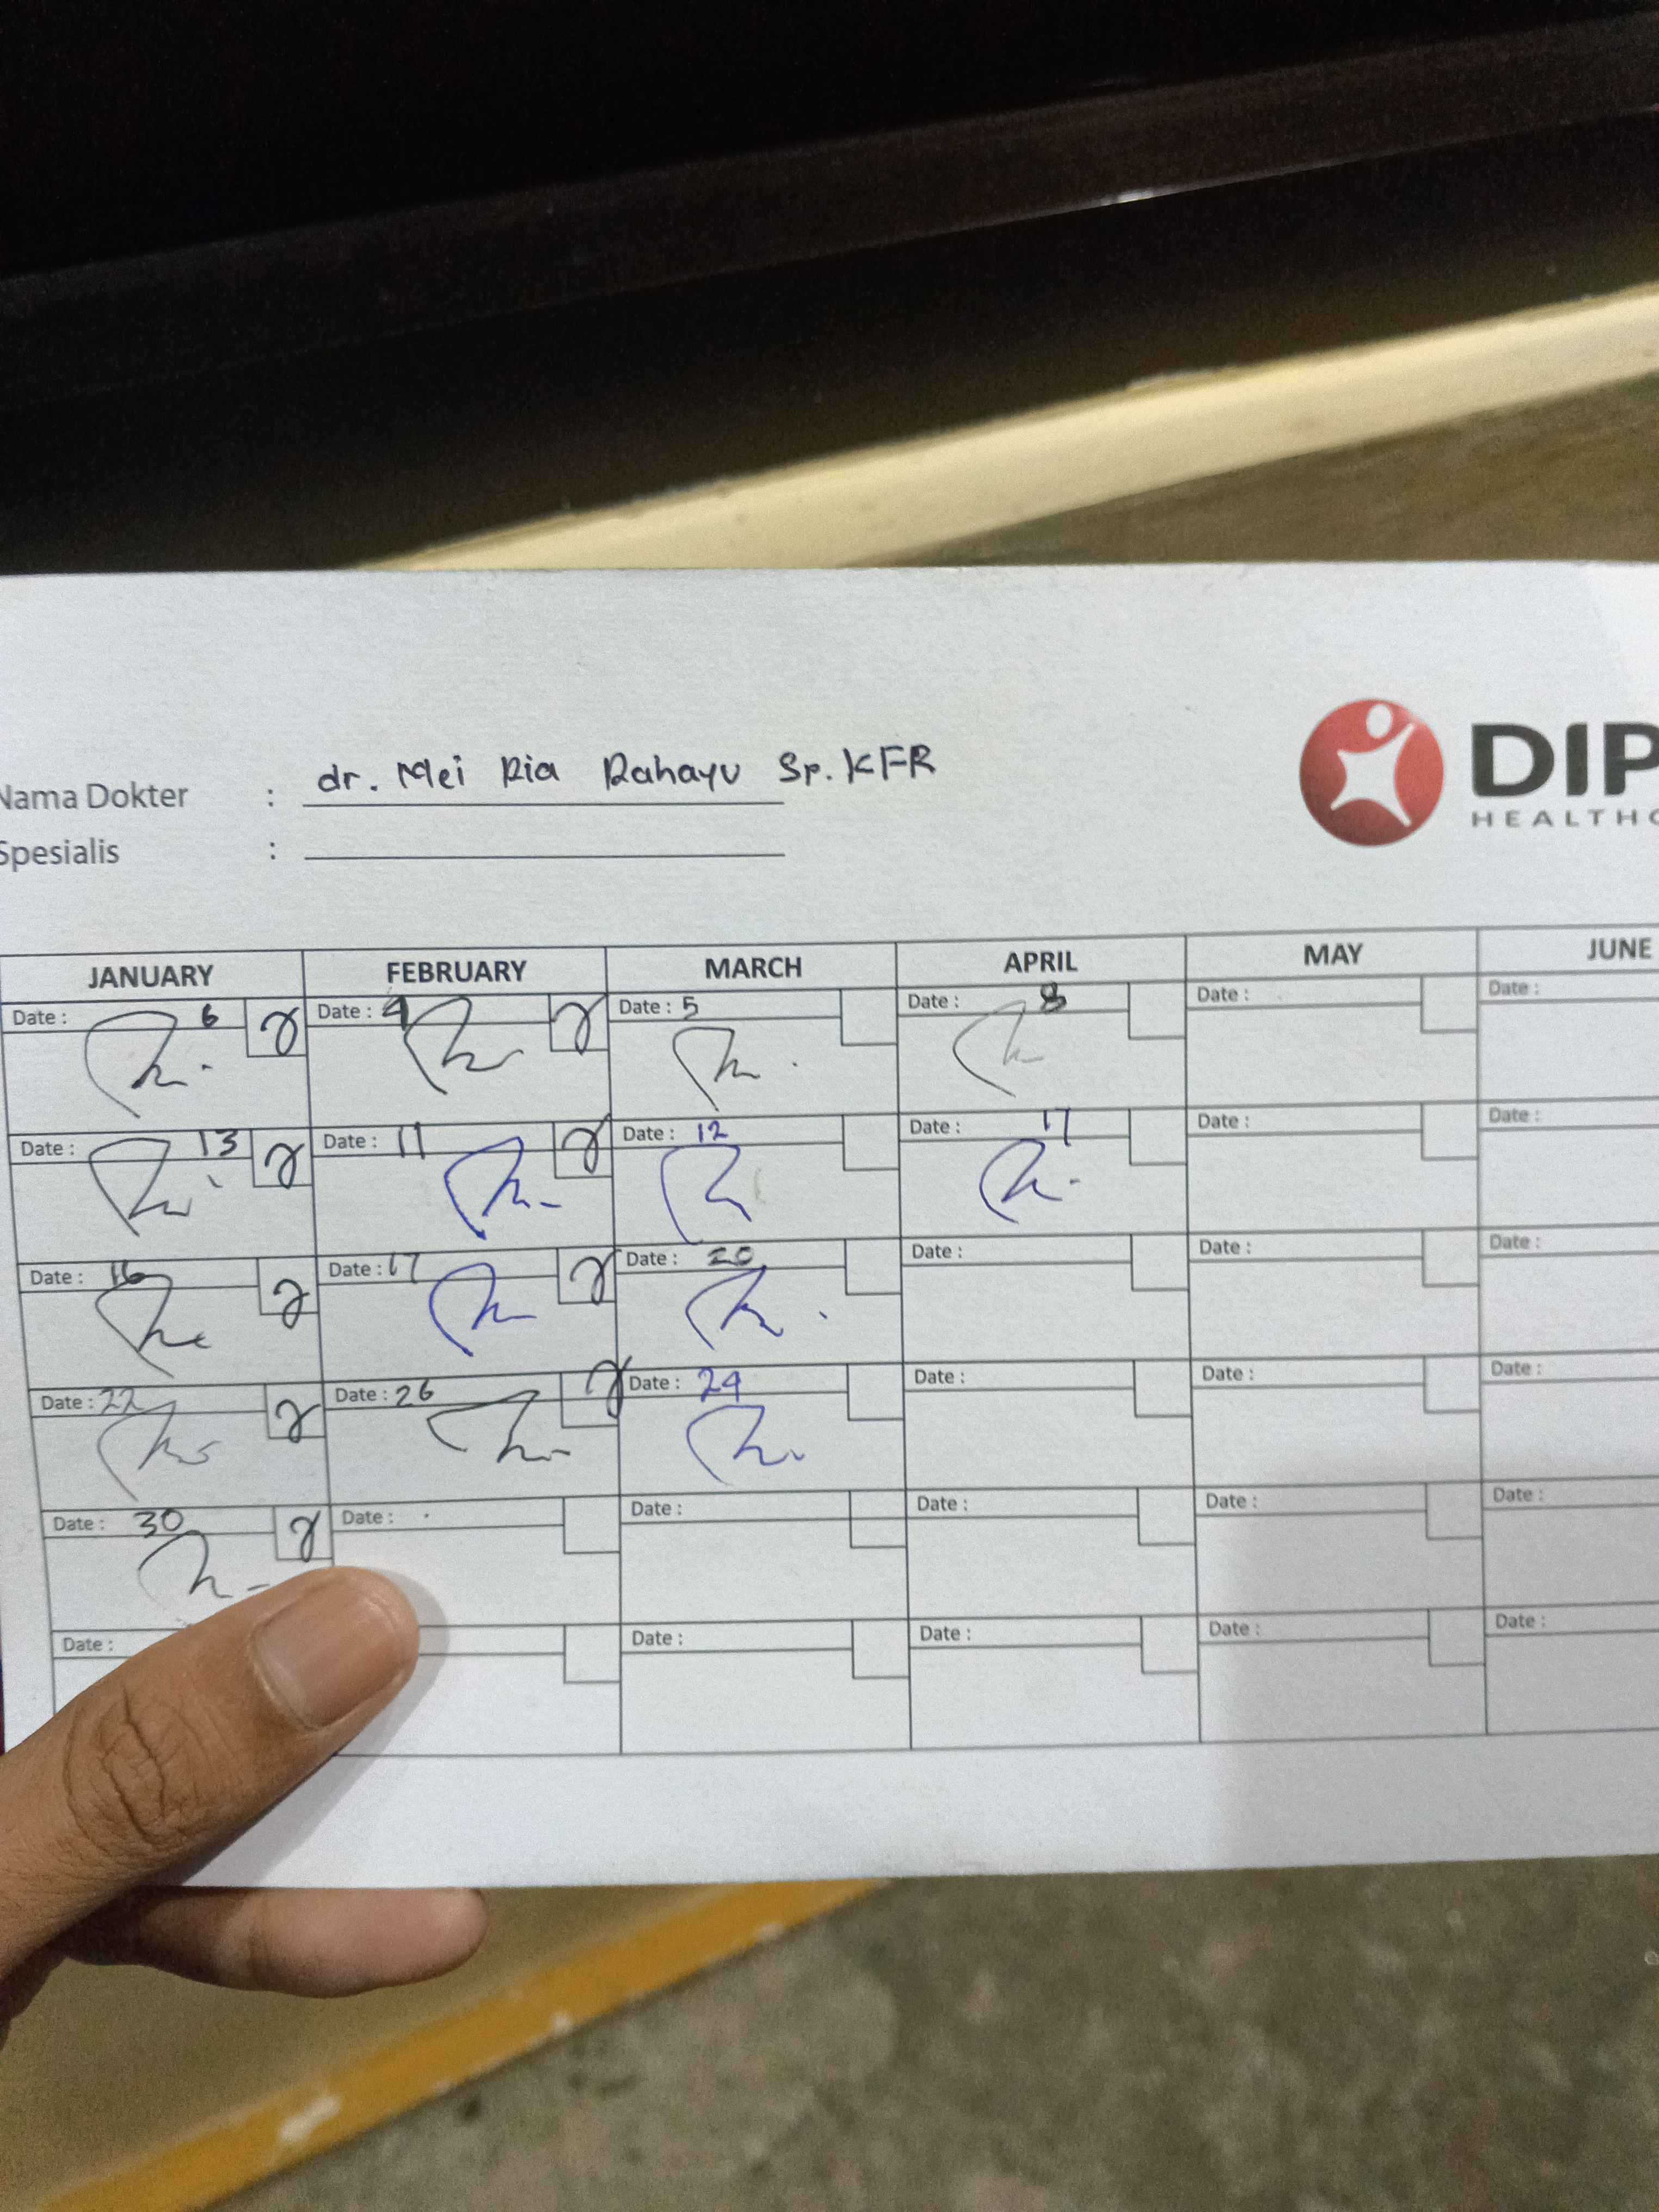 Nama Dokter : dr. Mei Ria Rahayu Sp.KFR
Spesialis :
DIP
HEALTHC
JANUARY FEBRUARY MARCH APRIL MAY JUNE
Date : 6 Date : 4 Date : 5 Date : 8 Date : Date :
Date : 13 Date : 11 Date : 12 Date : 17 Date : Date :
Date : 16 Date : 17 Date : 20 Date : Date : Date :
Date : 22 Date : 26 Date : 24 Date : Date : Date :
Date : 30 Date : Date : Date : Date : Date :
Date : Date : Date : Date : Date :